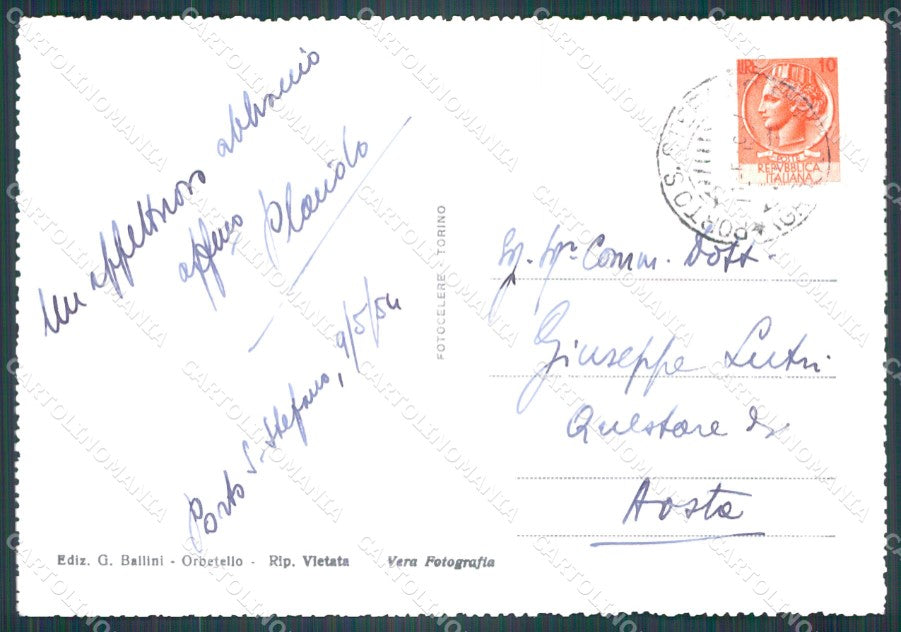 Un affettuoso abbraccio
affmo Placido
Porto S. Stefano, 9/5/54
FOTOCELERE TORINO
LIRE 10
POSTE
REPUBBLICA
ITALIANA
PORTO S. STEF
Comm. Dott.
Giuseppe Lutri
Questore di
Aosta
Ediz. G. Ballini - Orbetello - Rip. Vietata Vera Fotografia
CARTOLINOMANIA